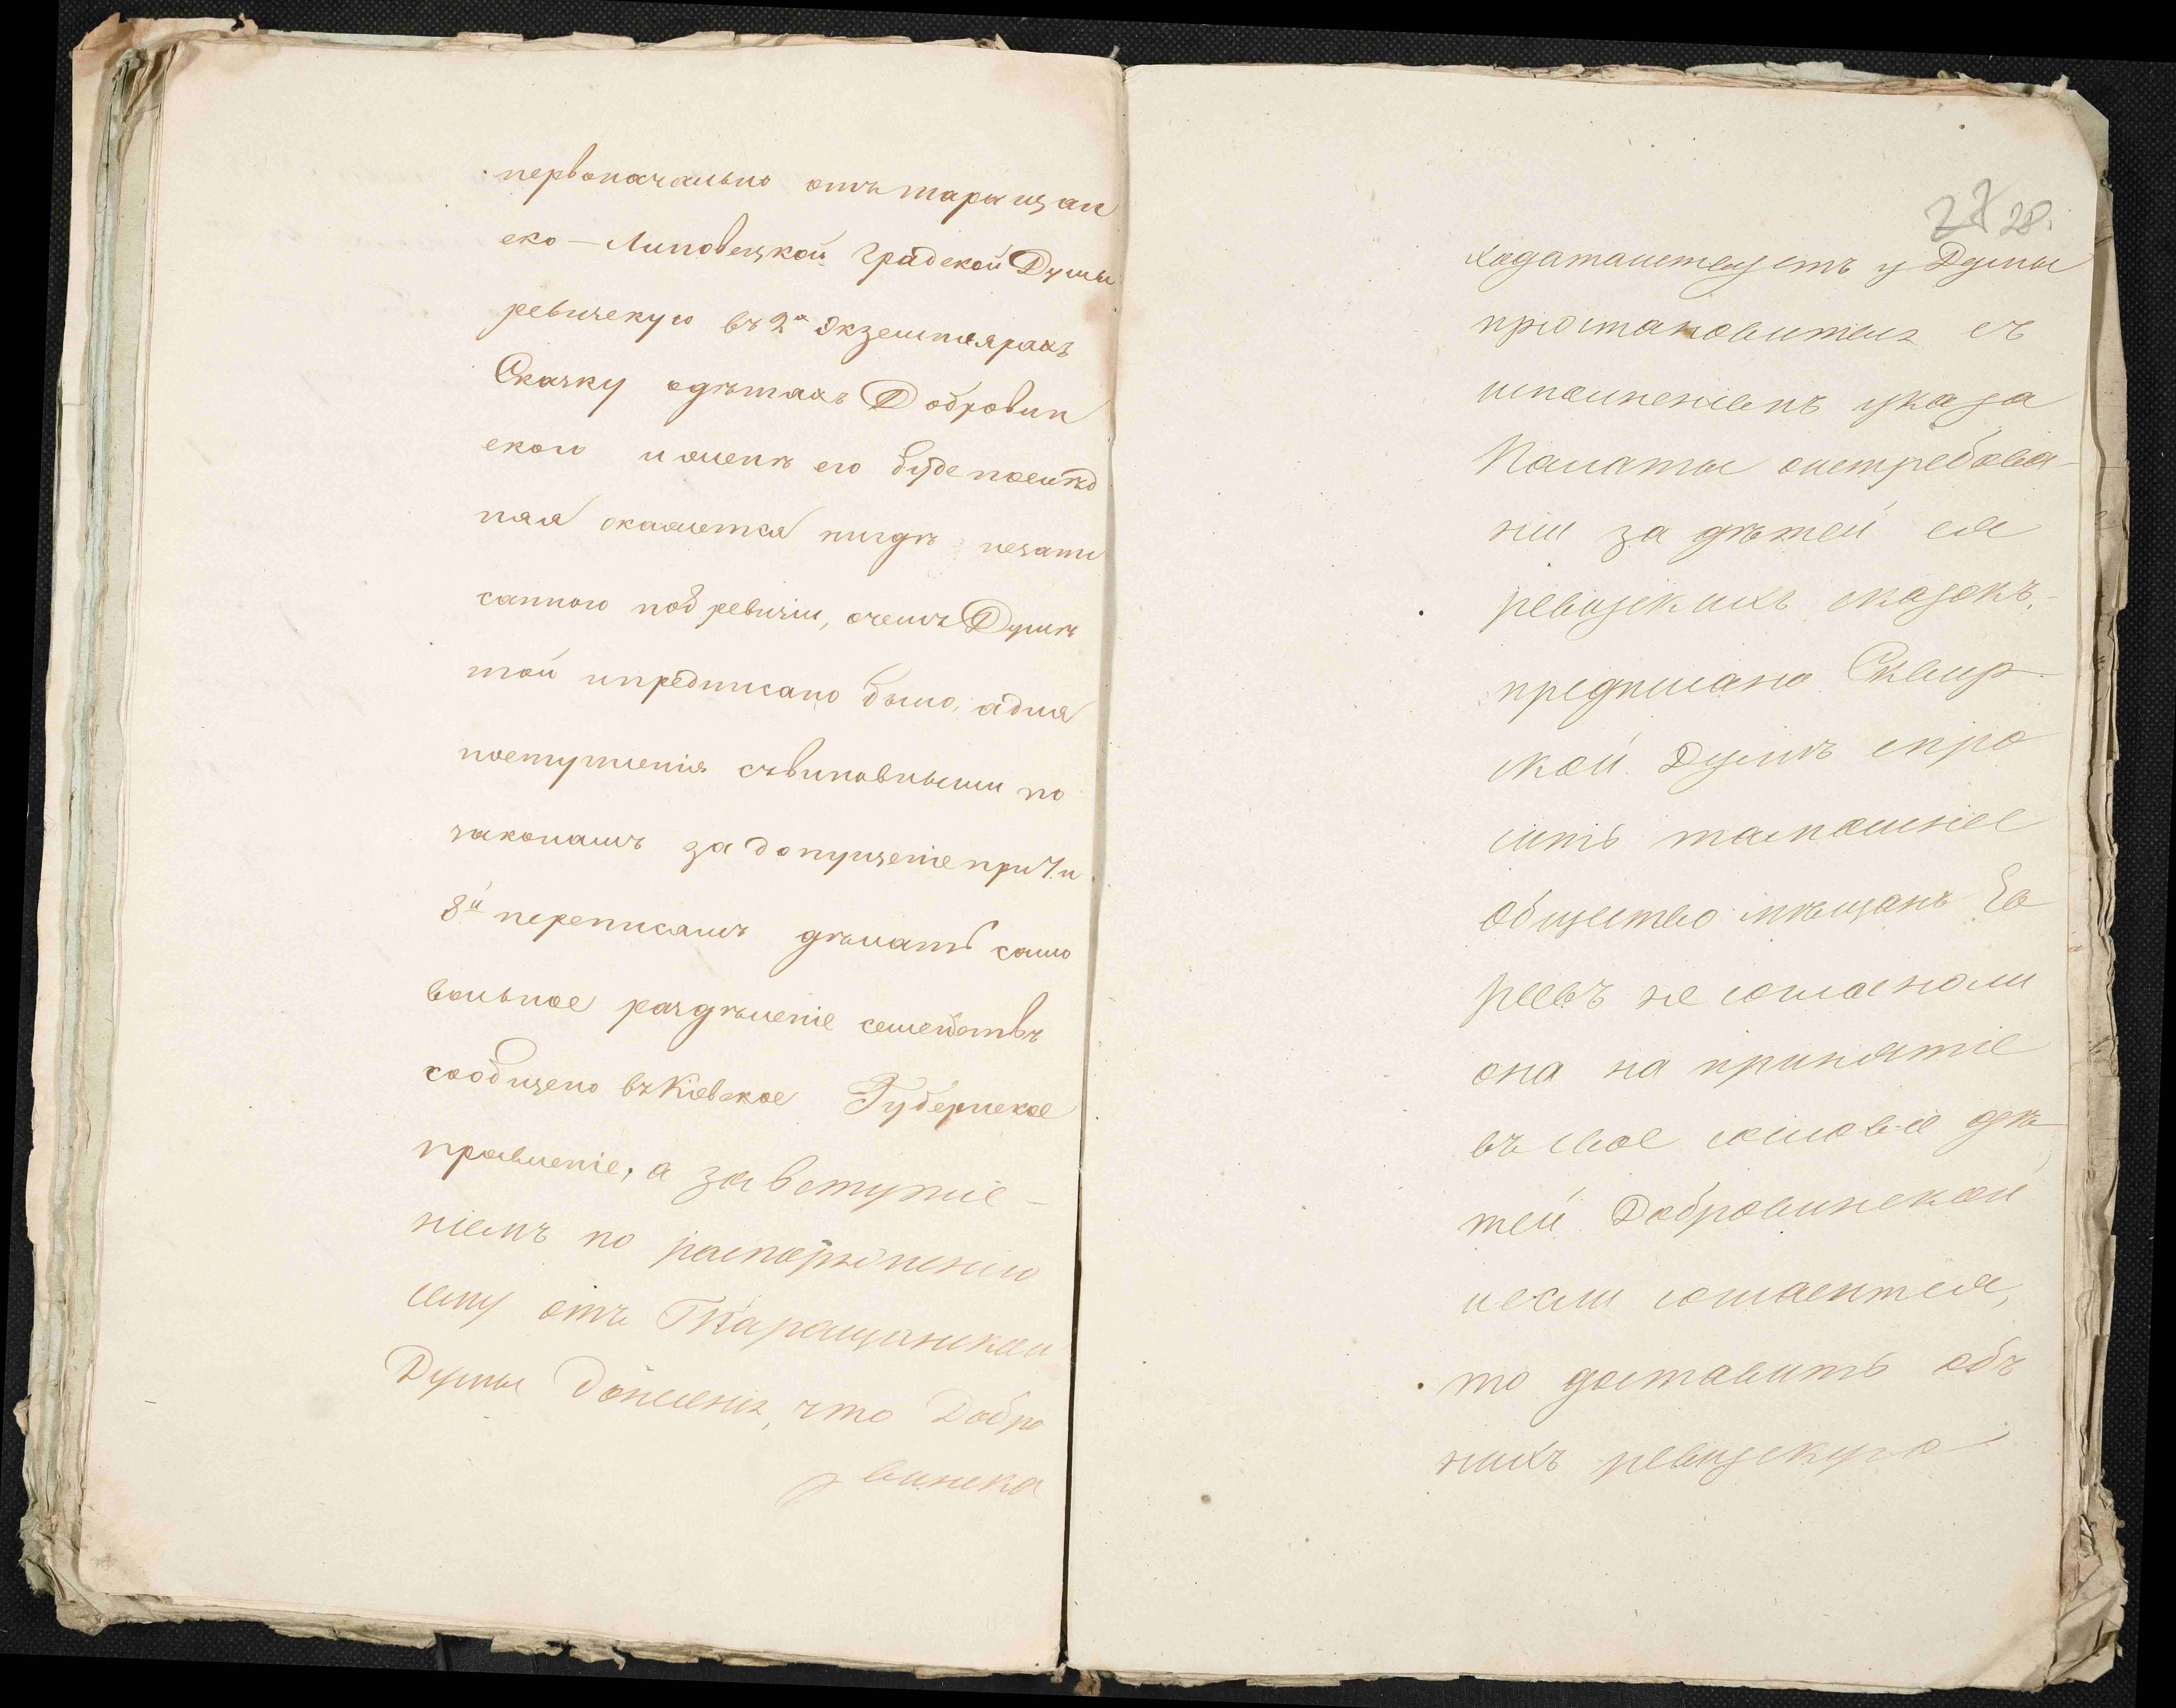 первоначально отъ таращан
ско-Липовецкой Градской Думы
ревизскую въ 2х экземплярахъ
Сказку одѣтяхъ Добровин
ского и женѣ его буде послѣд
няя окажется нигдѣ незапи
санною под ревизіи, очемъ Думѣ
той ипредписано было, адля
поступленія съвиновными по
законамъ за допущеніе при 7 и
8й переписамъ дѣлать само
вольное раздѣленіе семействъ
сообщено въ Кіевское Губернское
правленіе, а за вступле-
ніемъ по распоряженію
сему отъ Таращанской
Думы донесенія, что Добро
винска
27 28.
ходатайствуетъ у Думы
пріостановиться съ
исполненіемъ указа
Палаты оистребова-
ніи за дѣтей ея
ревизскихъ сказокъ,-
предписано Сквир-
ской Думѣ спро
сить тамошнее
общество мѣщанъ Ев
реевъ не согласноли
оно на принятіе
въ свое сословіе дѣ
тей Добровинской
иесли согласится,
то доставить объ
нихъ ревизскую